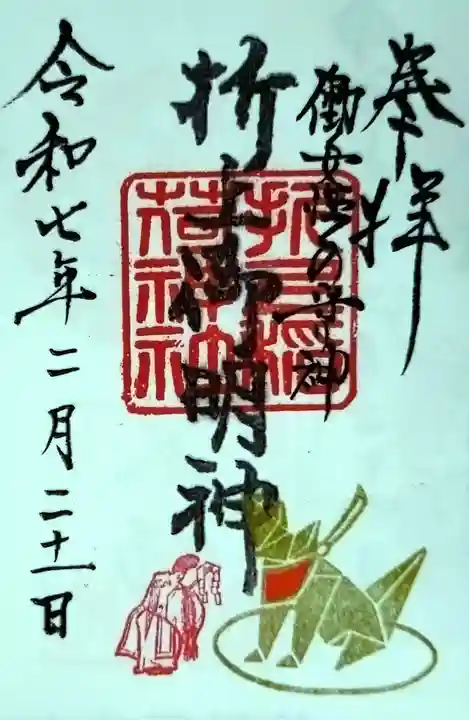 奉拝
働女性の守神
折上御明神
折上稲荷神社
令和七年二月二十一日